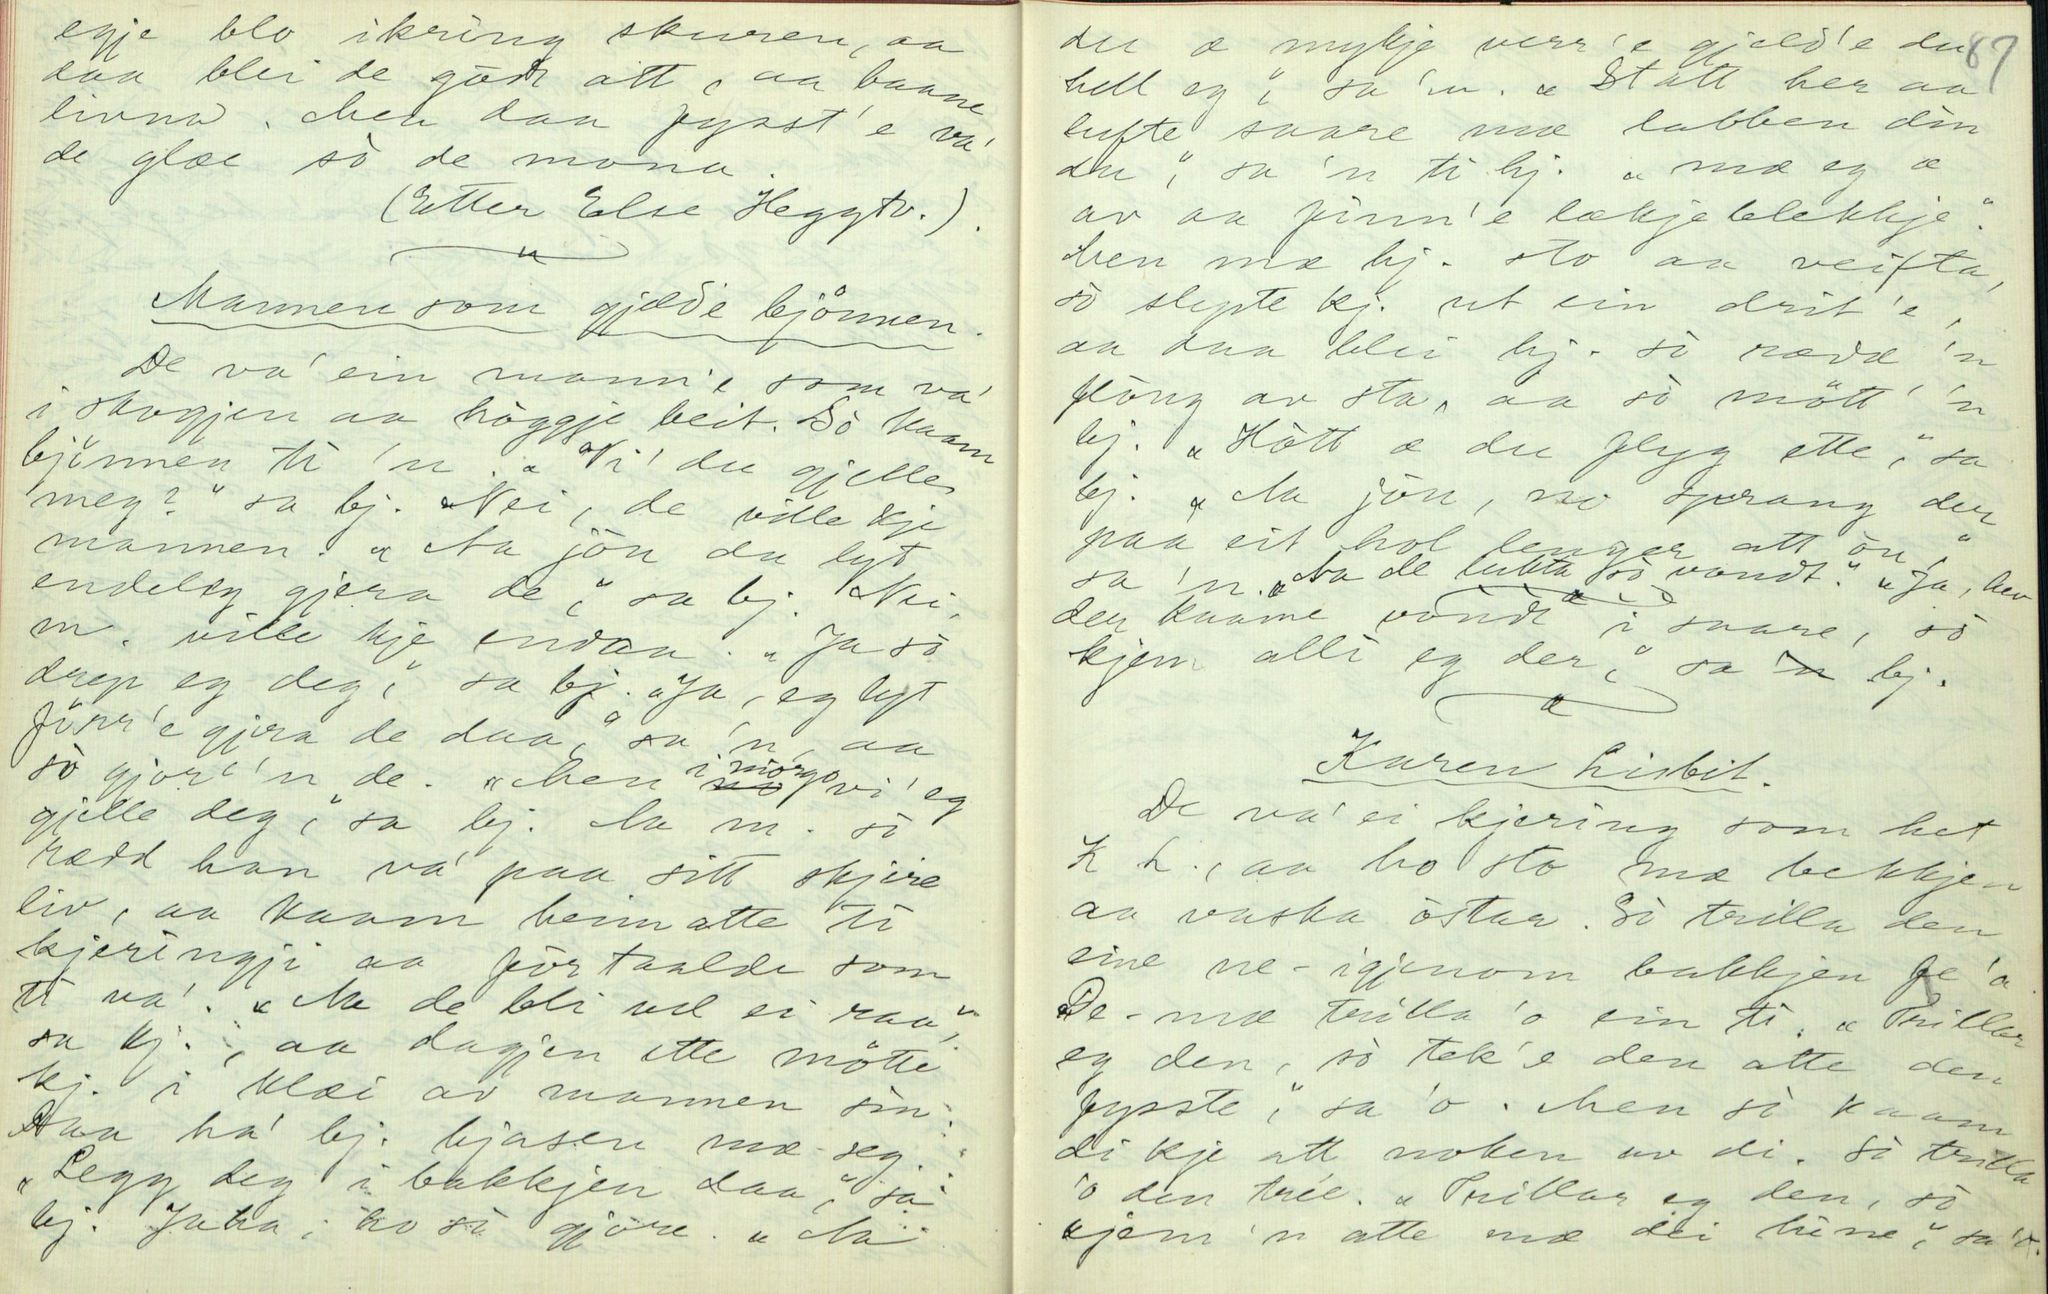 egje blo ikring skuren, aa
daa blei de gödt att, aa baane
livna. Men daa fysst'e va'
de glæ sò de mona.
(Etter Else Heggtv.).
Mannen som gjælde bjönnen.
De va' ein mann'e som va'
i skogjen aa höggje beit. Sò kaam
bjönnen ti 'n. "Vi' du gjelle
meg?" sa bj. "Nei, de ville kje
mannen. "Aa jòu du lyt
endeleg gjera de," sa bj. Nei,
m. ville kje endaa. "Ja sò
drep eg deg," sa bj. "Ja, eg lyt
fisst'e gjera de daa," sa 'n, aa
sò gjore'n de. "Men i morgo vi' eg
gjelle deg," sa bj. Aa m. sò
rædd han va' paa sitt skjire
liv, aa kaam heim atte ti
kjeringji aa förtaalde som
ti va'. "Aa de bli vel ei raa",
sa kj., aa dagjen ette mötte
kj. i klæi av mannen sin.
Daa ha' bj. bjasen mæ seg.
"Legg deg i bakkjen daa," sa
bj. Jaha, ho sò gjòre. "Aa
87
du æ mykje verr'e gjeld'e du
hell eg," sa 'n. "Statt her aa
lufte saare mæ labben din
du," sa 'n ti bj. "mæ eg æ
av aa finn'e lækjeblekkje".
Men mæ bj. sto aa veifta,
sò slepte kj. ut ein drit'e,
aa daa blei bj. sò rædd 'n
flöng av sta, aa sò mött' 'n
bj. "Hòtt æ du flyg ette," sa
bj. "Aa jòu, no sprang der
paa eit hol lenger att òn,"
sa 'n. "Aa de lukta sò vondt." "Ja, hev
der kaame vondt i saare, sò
kjem alli eg der," sa bj.
Karen Lisbit.
De va' ei kjering som het
K L., aa ho sto mæ bekkjen
aa vaska östaa. Sò trilla den
eine ne-igjenom bakkjen fe 'o.
De-mæ trilla 'o ein ti. "Trillar
eg den, sò tek'e den atte den
fysste," sa 'o. Men sò kaam
di kje att noken av di. Sò trilla
'o den tréè. "Trillar eg den, sò
kjem 'n atte mæ dei hine," sa 'o.